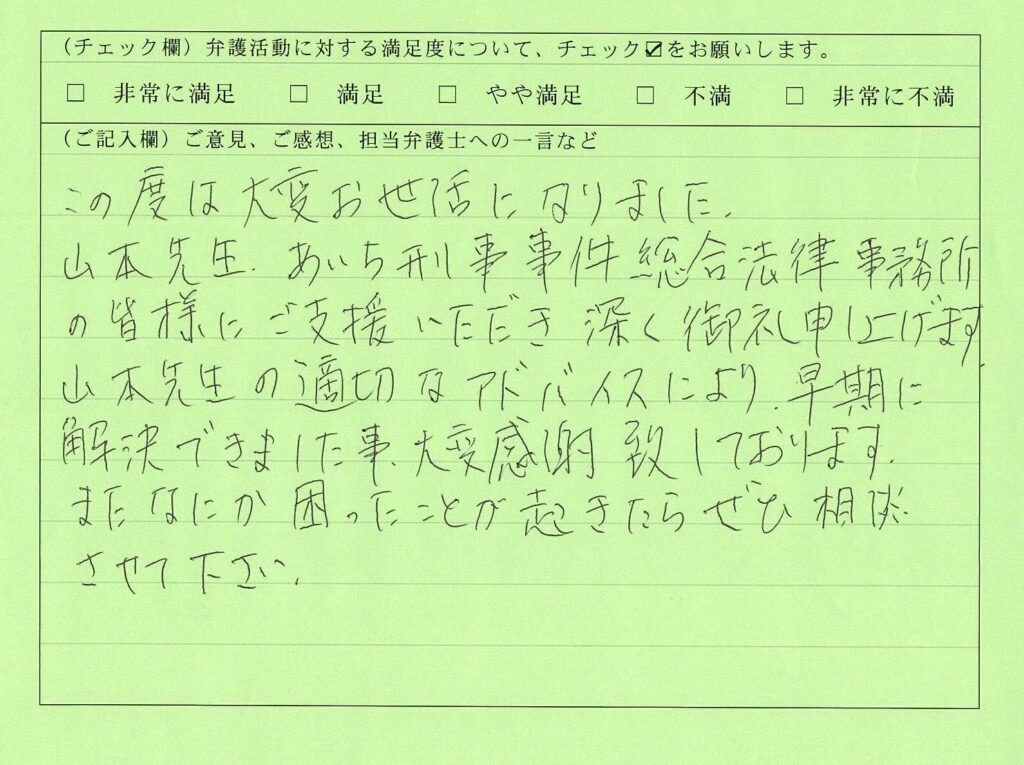 (チェック欄)弁護活動に対する満足度について、チェック☑をお願いします。
□ 非常に満足 □ 満足 □ やや満足 □ 不満 □ 非常に不満
(ご記入欄)ご意見、ご感想、担当弁護士への一言など
この度は大変お世話になりました。
山本先生、あいち刑事事件総合法律事務所
の皆様にご支援いただき深く御礼申し上げます。
山本先生の適切なアドバイスにより、早期に
解決できました事、大変感謝致しております。
またなにか困ったことが起きたらぜひ相談
させて下さい。